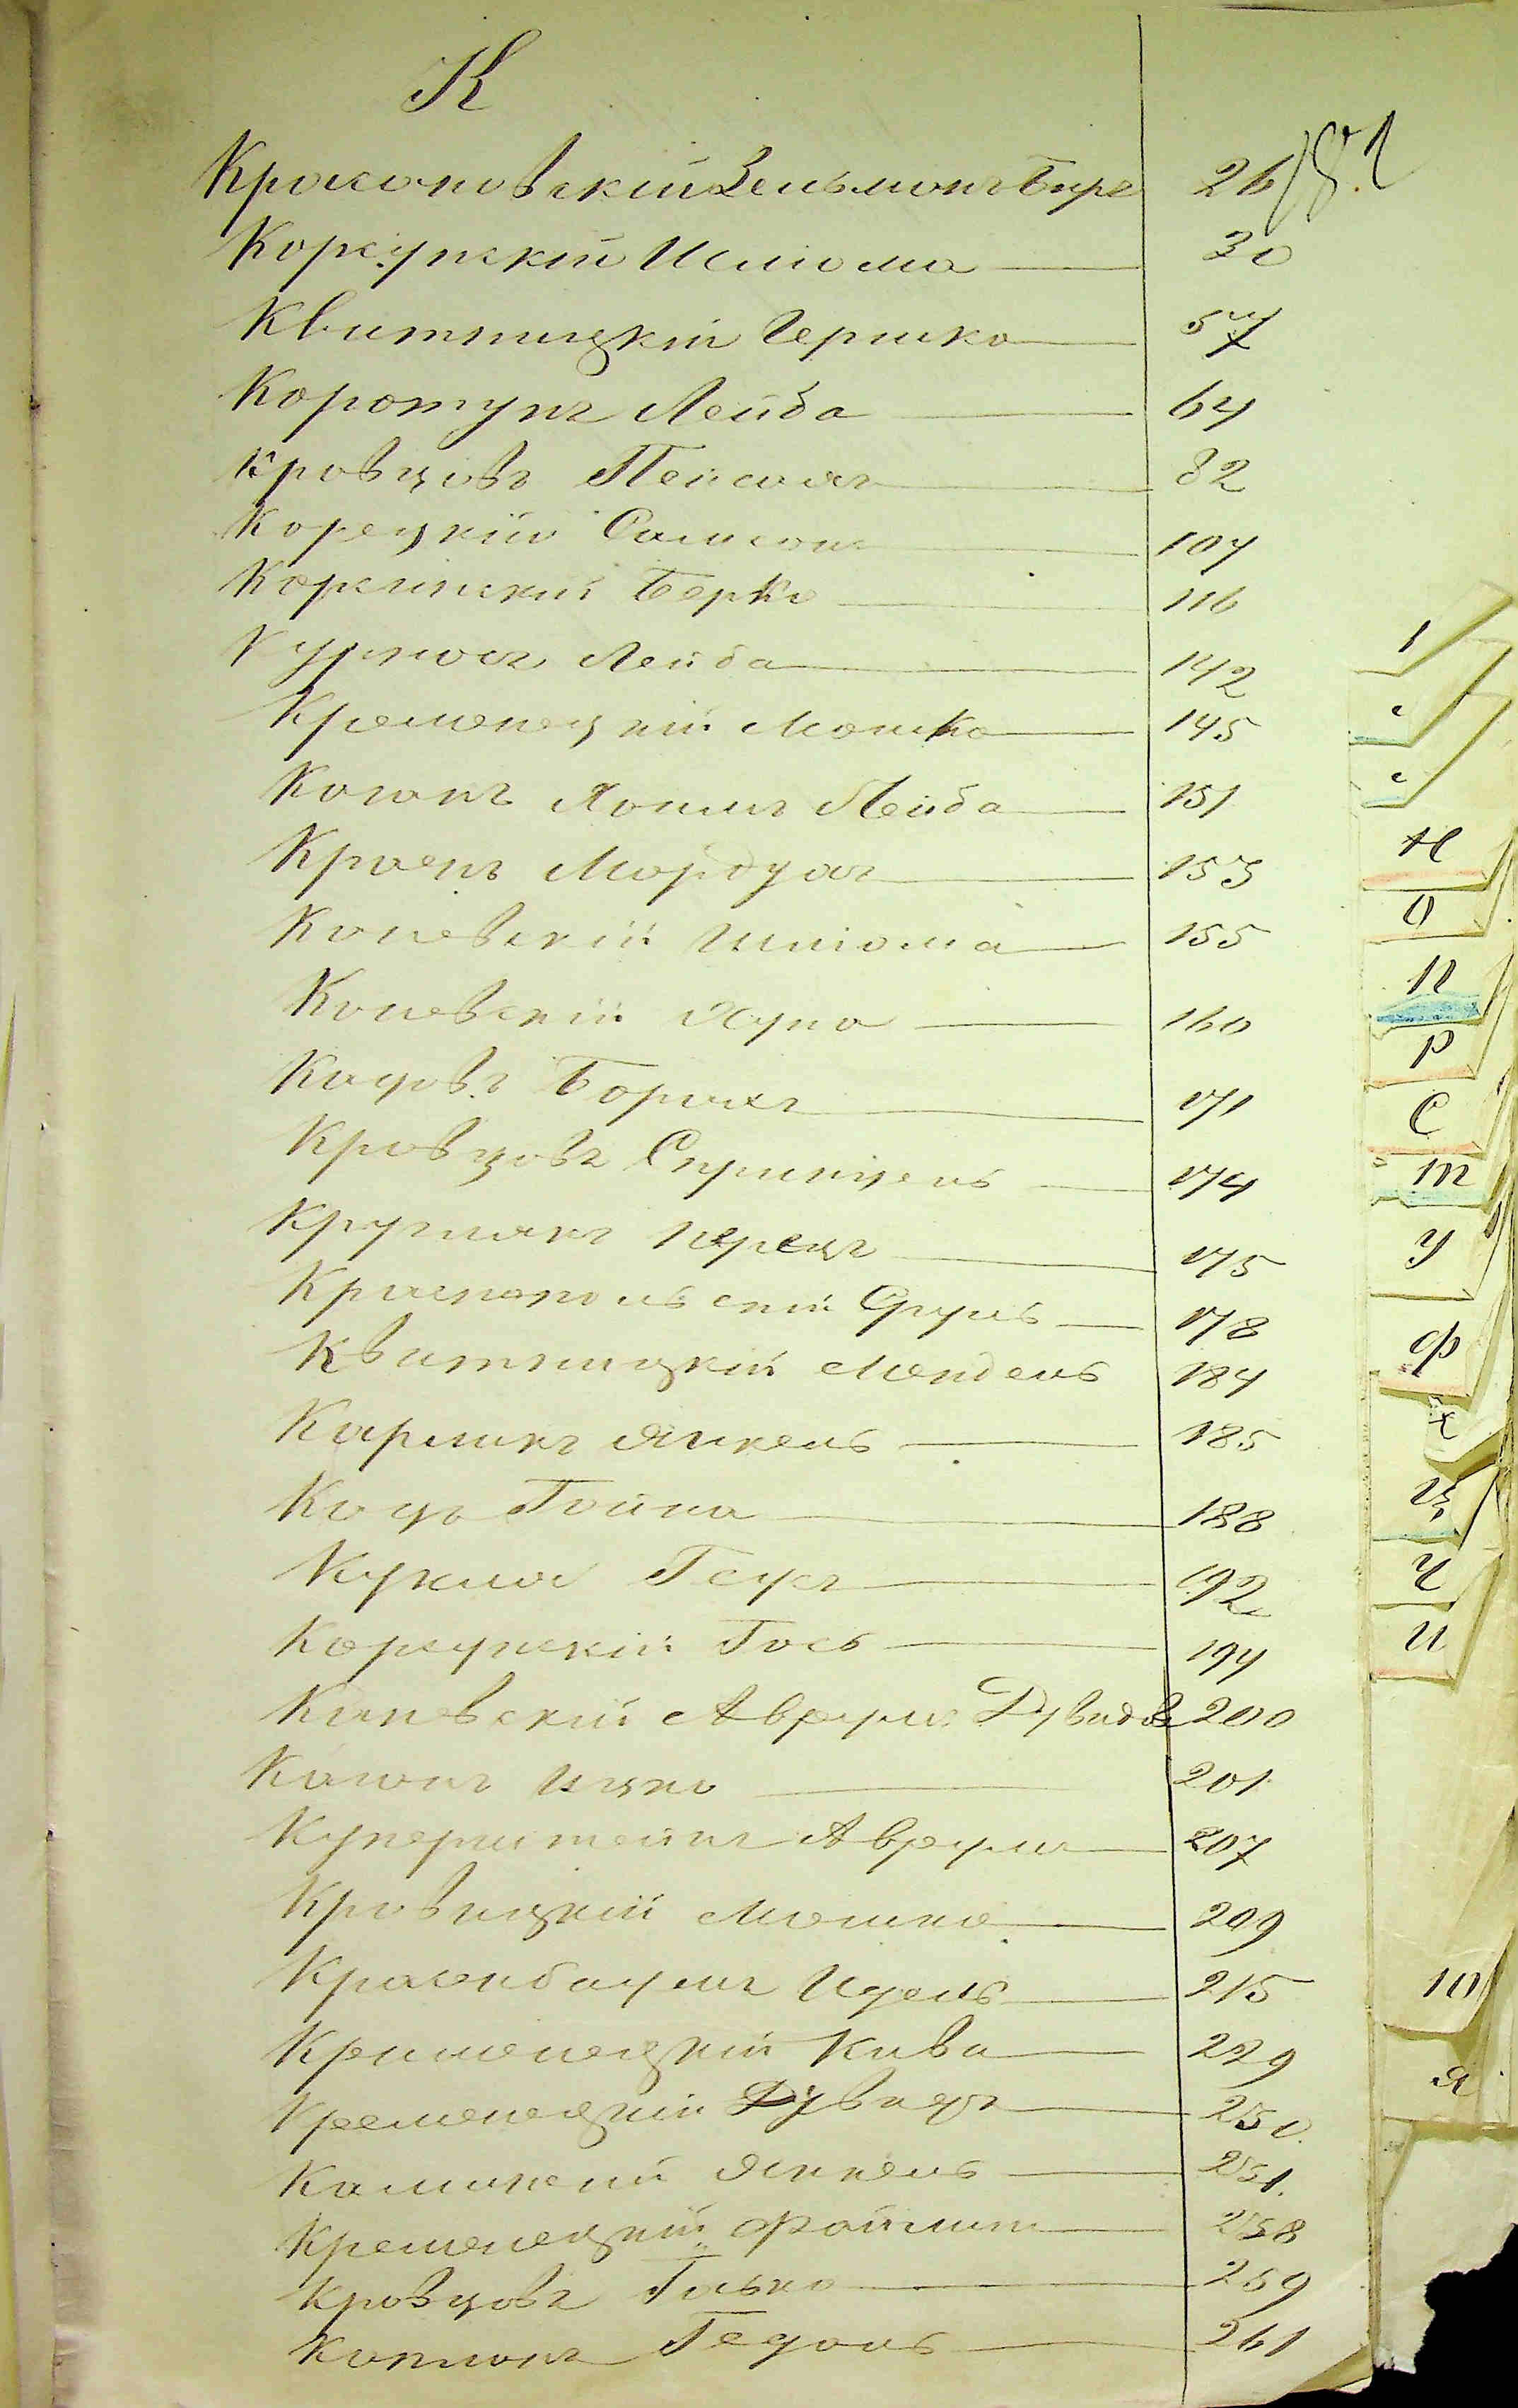 К
Красановскій Зельманъ Бере 26 / 181
Корсунскій Шліома 30
Квитницкій Гершко 57
Коротунъ Лейба 64
Кравцовъ Пейсахъ 82
Корецкій Самсонъ 104
Корсинскій Берко 116
Курносъ Лейба 142
Кременецкій Мошко 145
Коганъ Хаимъ Лейба 151
Краенъ Мордухъ 153
Каневскій Шліома 155
Каневскій Хуна 160
Кацовъ Борухъ 171
Кравцовъ Спринцель 174
Круглякъ Перецъ 175
Краснопольскій Сруль 178
Квитницкій Мендель 184
Карликъ Янкель 185
Кацъ Тойна 188
Кукла Гецъ 192
Корсунскій Гось 194
Каневскій Аврумъ Дувидов 200
Каганъ Ицко 201
Куперштейнъ Аврумъ 207
Кравицкій Мошко 209
Красенбаумъ Идель 215
Кременецкій Кива 229
Кременецкій Дувидъ 250.
Калинскій Янкель 251.
Кременецкій Файвиш 258
Кравцовъ Гасько 259
Капланъ Гедаль 261
Н
О
П
Р
С
Т
У
Ф
Х
Ц
Ч
Ш
Ю
Я